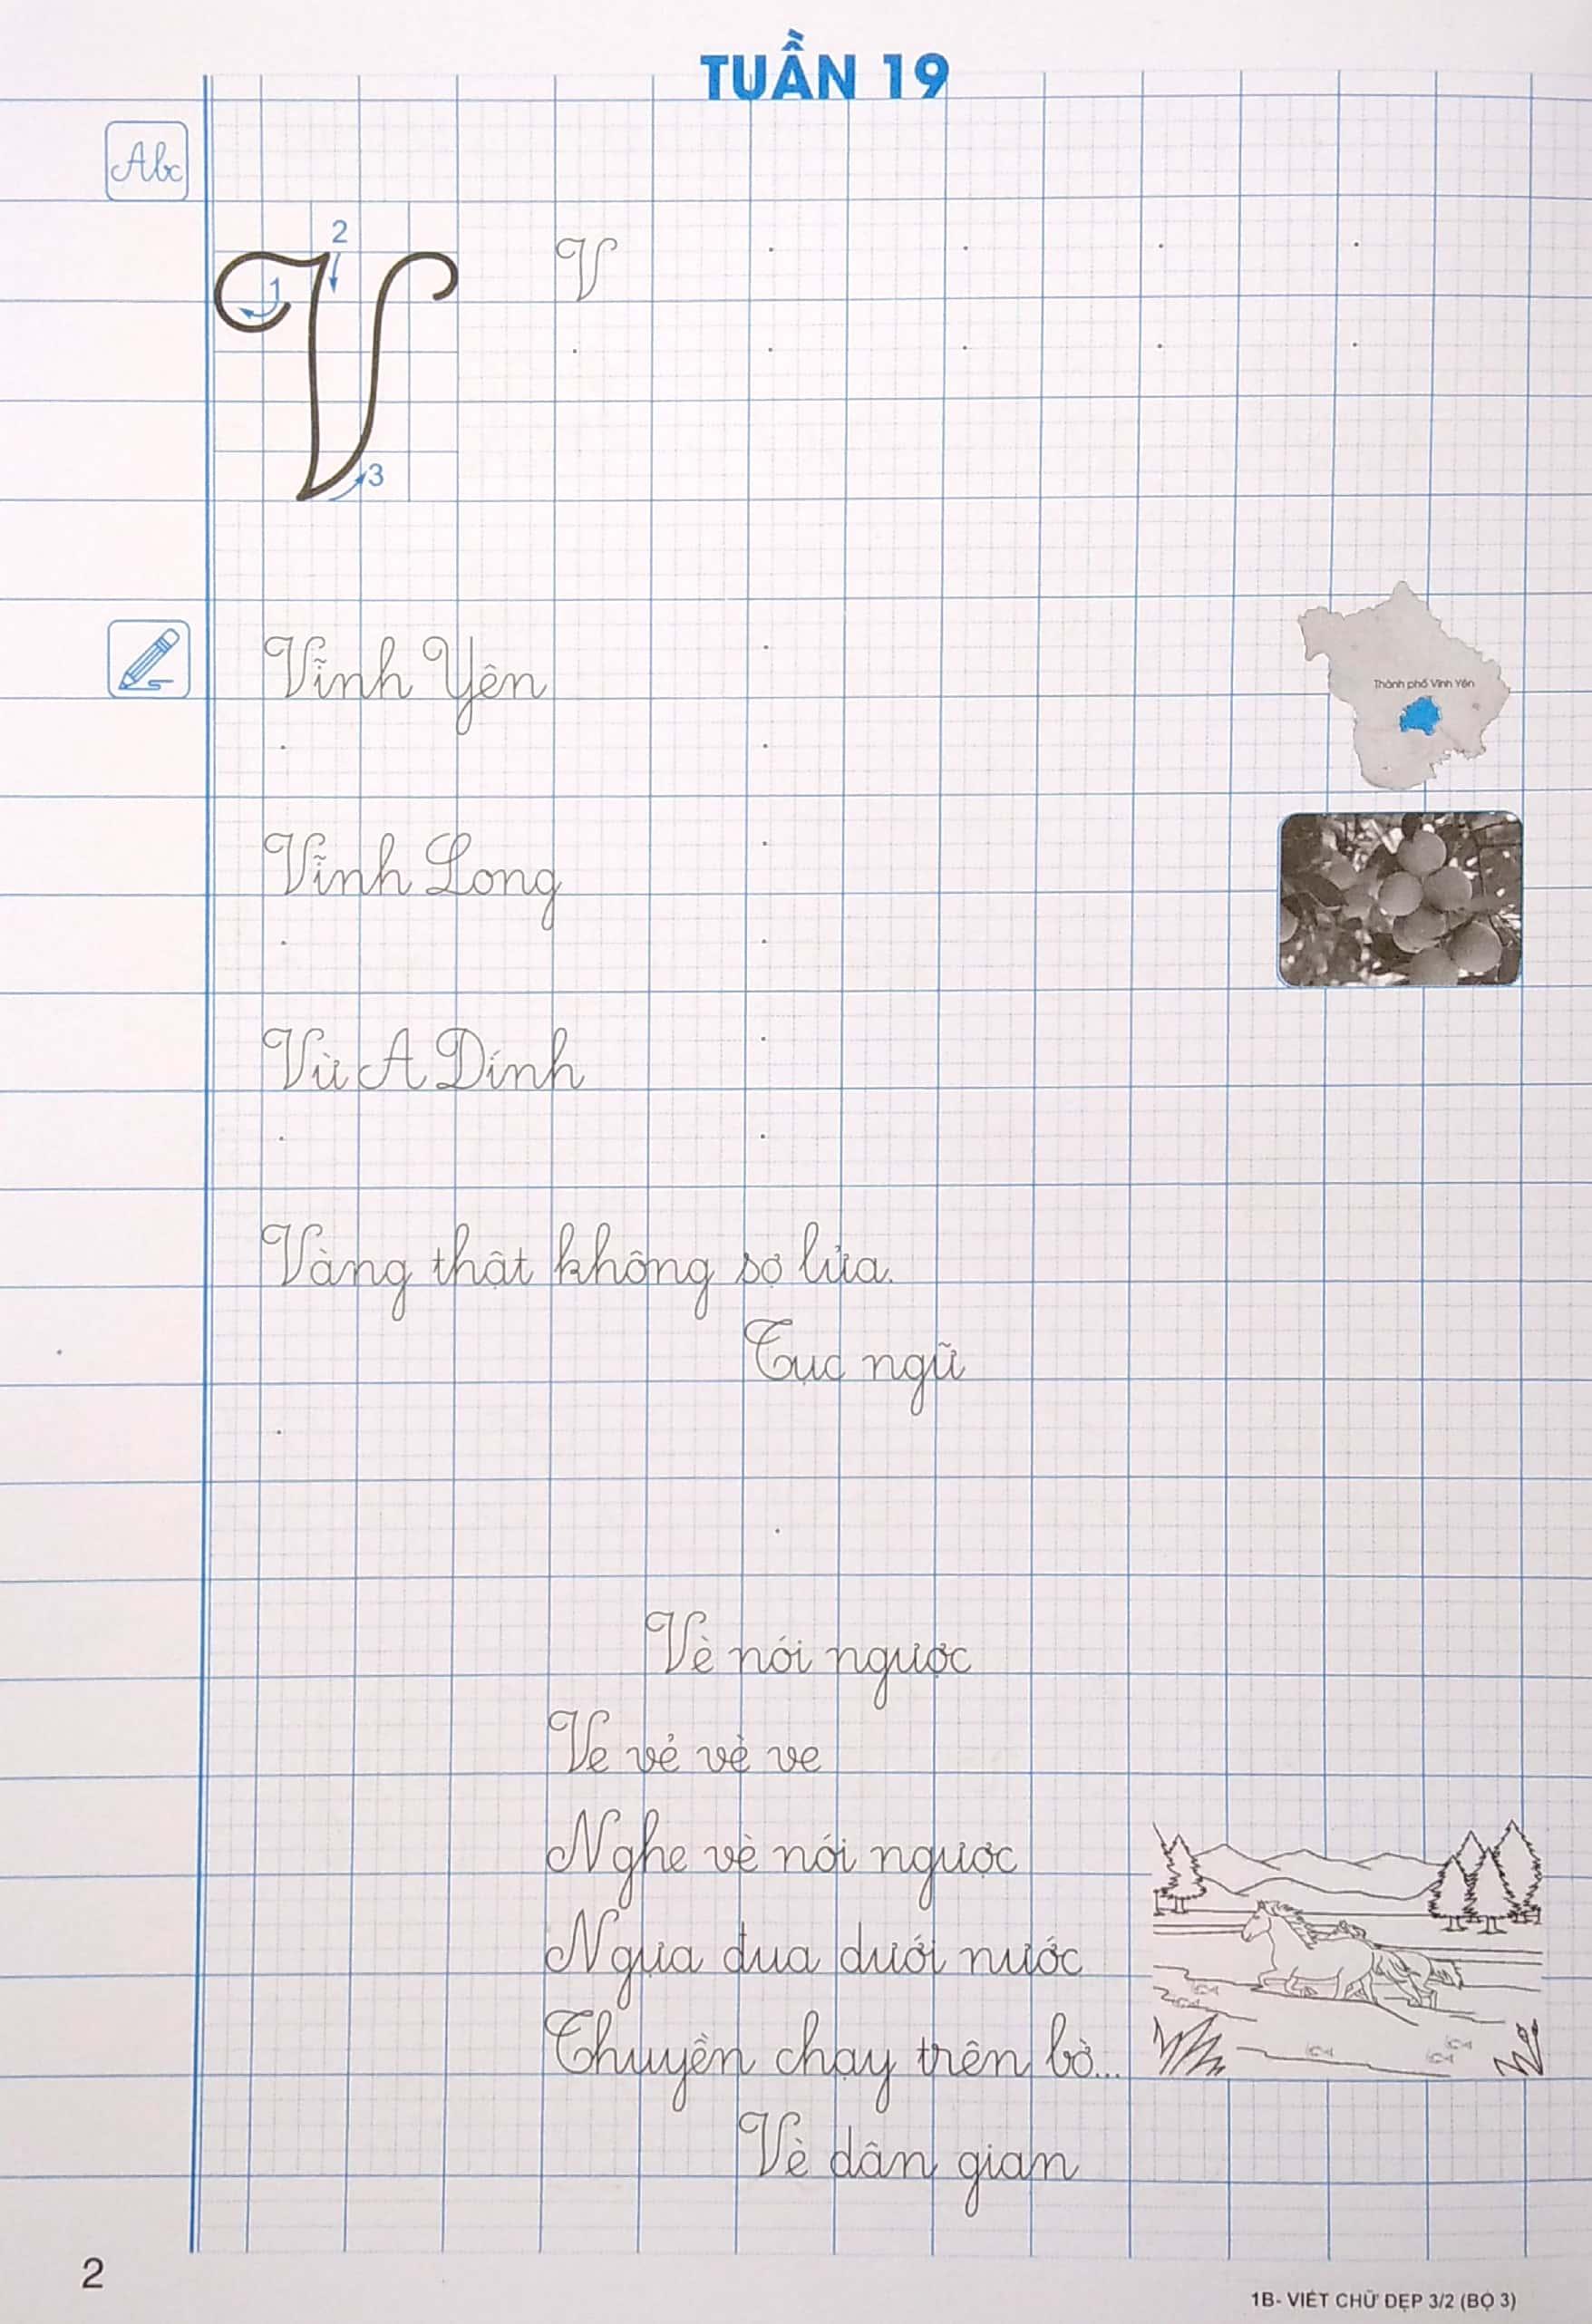 TUẦN 19
Abc
2
1
3
V
V
Vĩnh Yên
Thành phố Vĩnh Yên
Vĩnh Long
Vừ A Dính
Vàng thật không sợ lửa.
Tục ngữ
Vè nói ngược
Ve vẻ vè ve
Nghe vè nói ngược
Ngựa đua dưới nước
Thuyền chạy trên bờ...
Vè dân gian
2
1B- VIẾT CHỮ ĐẸP 3/2 (BỘ 3)